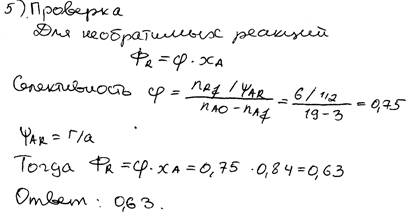 5) Проверка
Для необратимых реакций
Φ_R = φ · x_A
Селективность φ = (n_Rf / ψ_AR) / (n_A0 − n_Af) = (6/1/2) / (19−3) = 0,75
ψ_AR = г/а
Тогда Φ_R = φ · x_A = 0,75 · 0,84 = 0,63
Ответ: 0,63.